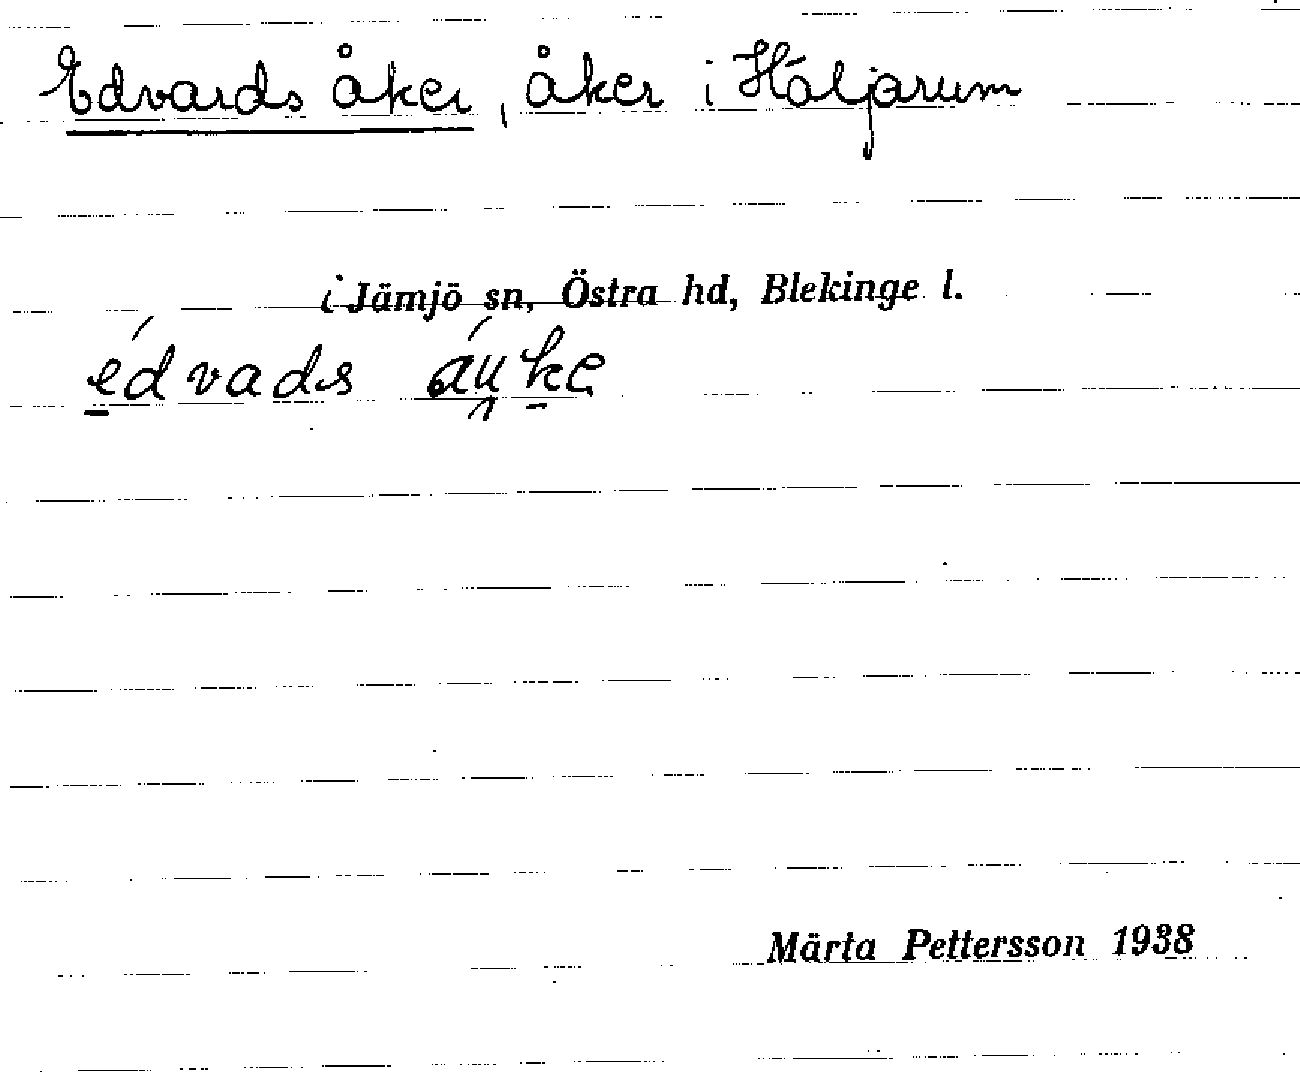 Edvards åker, åker i Häljarum
i Jämjö sn, Östra hd, Blekinge l.
édvads áu̯ke
Märta Pettersson 1938